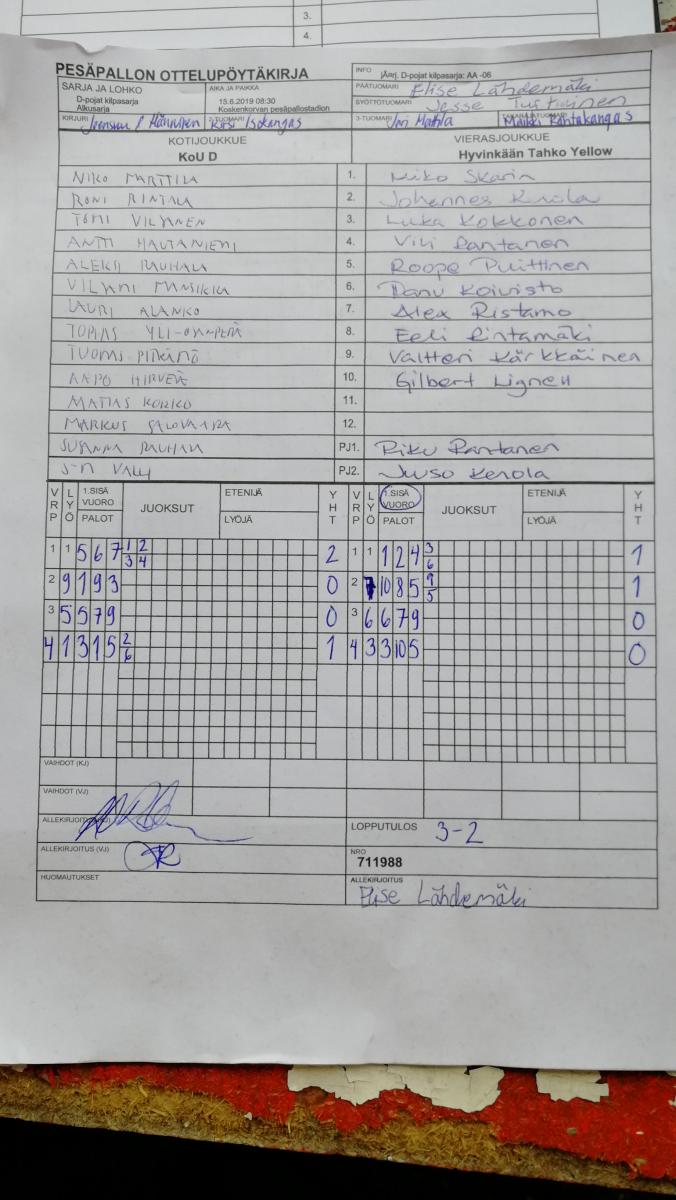 3.
4.
PESÄPALLON OTTELUPÖYTÄKIRJA
INFO jÄrrj. D-pojat kilpasarja: AA -06
PÄÄTUOMARI Elise Lähdemäki
SARJA JA LOHKO
D-pojat kilpasarja
Alkusarja
AIKA JA PAIKKA
15.6.2019 08:30
Koskenkorvan pesäpallostadion
SYÖTTÖTUOMARI Jesse
KIRJURI 2-TUOMARI Kirsi Isokangas 3-TUOMARI Jari Mattila
KOTIJOUKKUE
KoU D
VIERASJOUKKUE
Hyvinkään Tahko Yellow
NIKO MARTTILA 1. Niko Skarin
RONI RINTALA 2. Johannes Kerola
TOMI VILJANEN 3. Luka Kokkonen
ANTTI HAUTANIEMI 4. Vili Rantanen
ALEKSI RAUHALA 5. Roope Puittinen
VILJAMI MANSIKKA 6. Danu Koivisto
LAURI ALANKO 7. Alex Ristamo
TOPIAS YLI-OJANPERÄ 8. Eeli Rintamäki
TUOMAS PITKÄNÖ 9. Valtteri Kärkkäinen
AAPO HIRVELÄ 10. Gilbert Lignell
MATIAS KORKO 11.
MARKUS SALOVAARA 12.
SUSANNA RAUHALA PJ1. Riku Rantanen
J-N VALLI PJ2. Juuso Kerola
VRP LYÖ 1.SISÄ VUORO PALOT JUOKSUT ETENIJÄ LYÖJÄ YHT VRP LYÖ 1.SISÄ VUORO PALOT JUOKSUT ETENIJÄ LYÖJÄ YHT
1 1 5 6 7 1/3 2/4 2 1 1 1 2 4 3/6 1
2 9 1 9 3 0 2 7 10 8 5 9/5 1
3 5 5 7 9 0 3 6 6 7 9 0
4 1 3 1 5 2/6 1 4 3 3 10 5 0
VAIHDOT (KJ)
VAIHDOT (VJ)
ALLEKIRJOITUS (KJ) LOPPUTULOS 3-2
ALLEKIRJOITUS (VJ) NRO
711988
HUOMAUTUKSET ALLEKIRJOITUS
Elise Lähdemäki